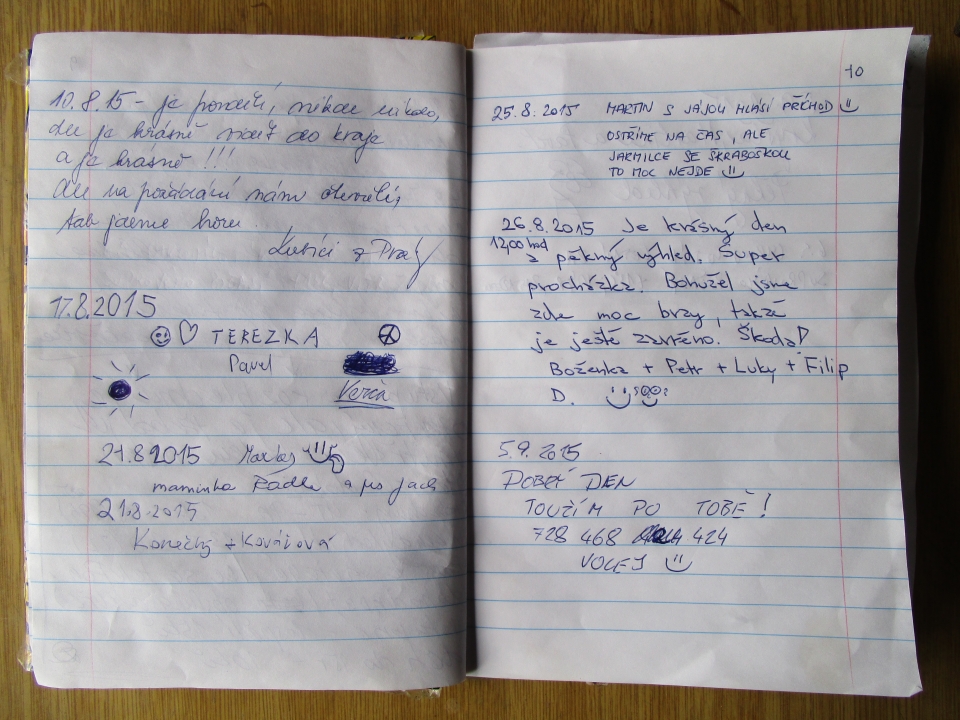 10.8.15 - je pondělí, nikde nikdo,
ale je krásně vidět do kraje
a je krásně !!!
Ale na požádání námi otevřeli,
tak jdeme hore.
z Prahy
17.8.2015
TEREZKA
Pavel
Verča
21.8.2015
maminka Radka a pes
21.8.2015
+ Kovářová
10
25.8.2015 MARTIN S JÁJOU HLÁSÍ PŘÍCHOD
OSTŘÍME NA ČAS, ALE
JARMILCE SE ŠKRABOŠKOU
TO MOC NEJDE
26.8.2015 Je krásný den
12,00 hod a pěkný výhled. Super
procházka. Bohužel jsme
zde moc brzy, takže
je ještě zavřeno. Škoda!
Boženka + Petr + Luky + Filip
D.
5.9.2015
DOBRÝ DEN
TOUŽÍM PO TOBĚ!
728 468 424
VOLEJ